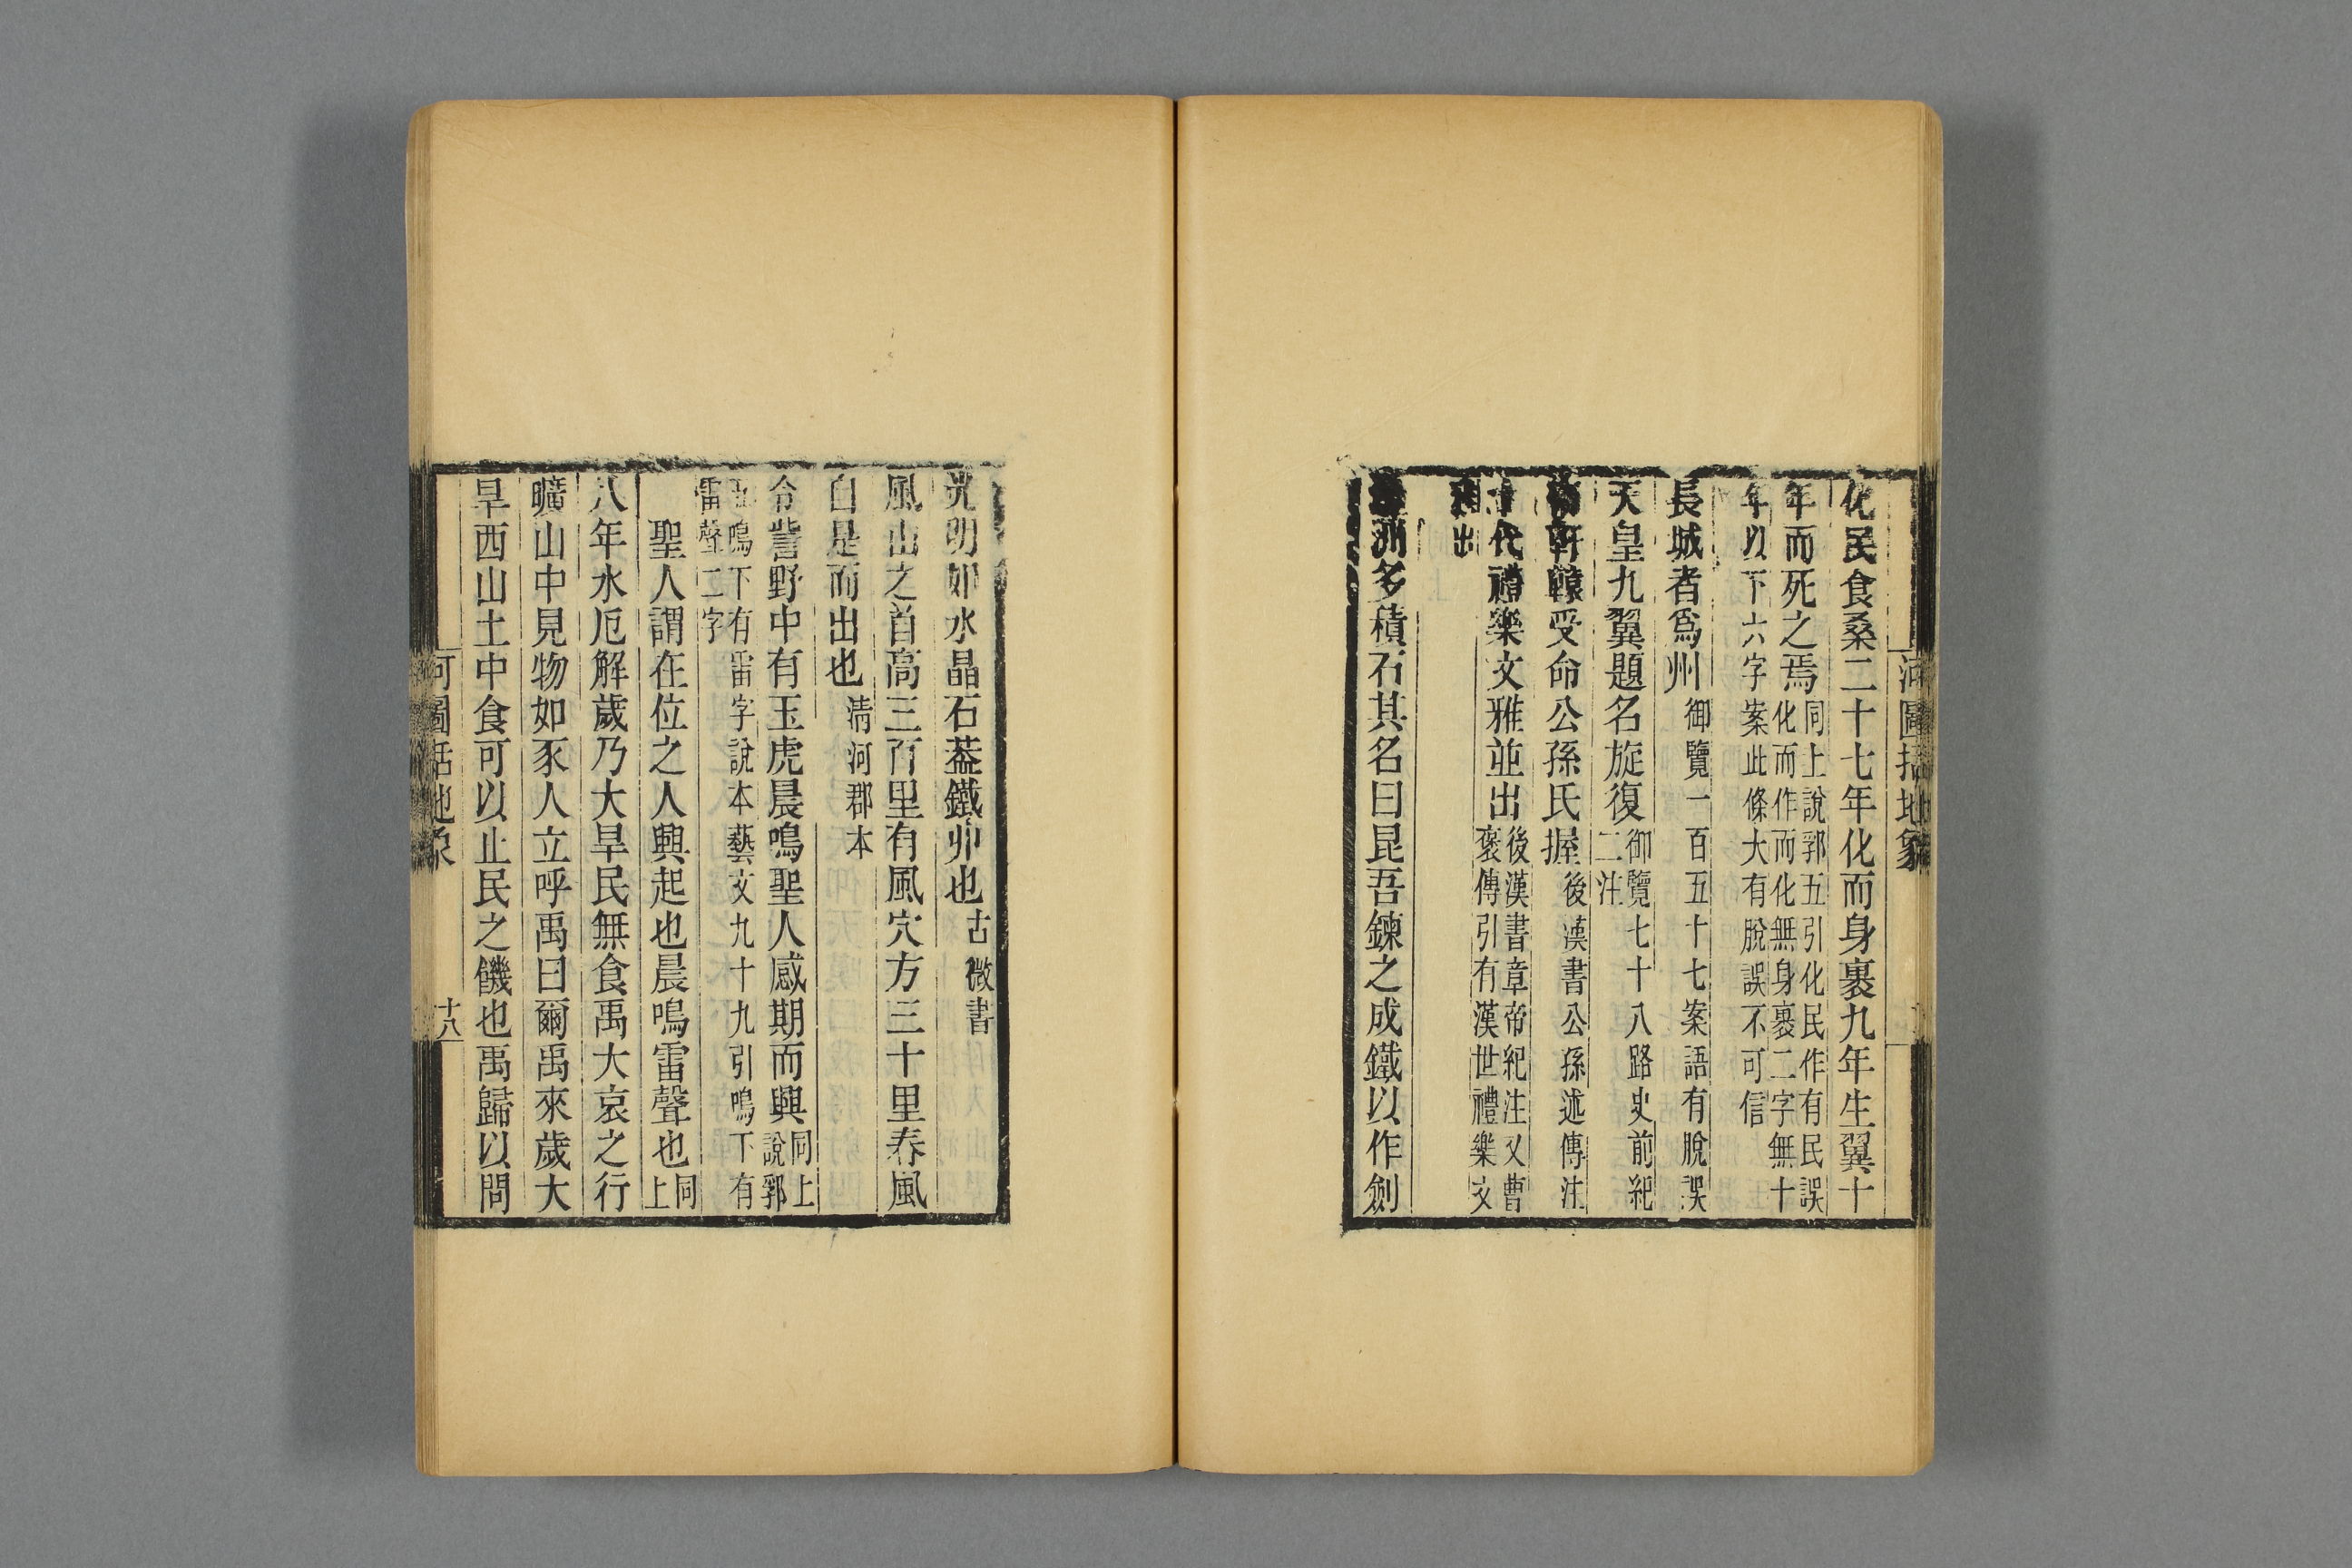 河圖括地象
化民食桑二十七年化而身裹九年生翼十
年而死之焉同上說郛五引化民作有民誤化而作而化無身裹二字無十
年以下六字案此條大有脫誤不可信
長城者爲州御覽一百五十七案語有脫誤
天皇九翼題名旋復御覽七十八路史前紀二注
軒轅受命公孫氏握後漢書公孫述傳注
十代禮樂文雅並出後漢書章帝紀注又曹褒傳引有漢世禮樂文
雅出
洲多積石其名曰昆吾鍊之成鐵以作劍
光明如水晶石葢鐵卯也古微書
風山之首高三百里有風穴方三十里春風
自是而出也清河郡本
令訾野中有玉虎晨鳴聖人感期而興同上說郛
玉鳴下有雷字說本藝文九十九引鳴下有
雷聲二字
聖人謂在位之人興起也晨鳴雷聲也同上
八年水厄解歲乃大旱民無食禹大哀之行
曠山中見物如豕人立呼禹曰爾禹來歲大
旱西山土中食可以止民之饑也禹歸以問
河圖括地象
十八